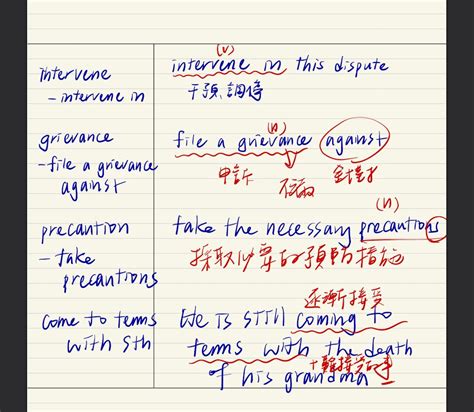 intervene
- intervene in
(v)
intervene in this dispute
干預,調停
grievance
- file a grievance
against
(n)
file a grievance against
申訴 不滿 針對
precaution
- take
precautions
(n)
take the necessary precautions
採取必要的預防措施
come to terms
with sth
逐漸接受
We is still coming to
terms with the death
of his grandma
+難接受的事